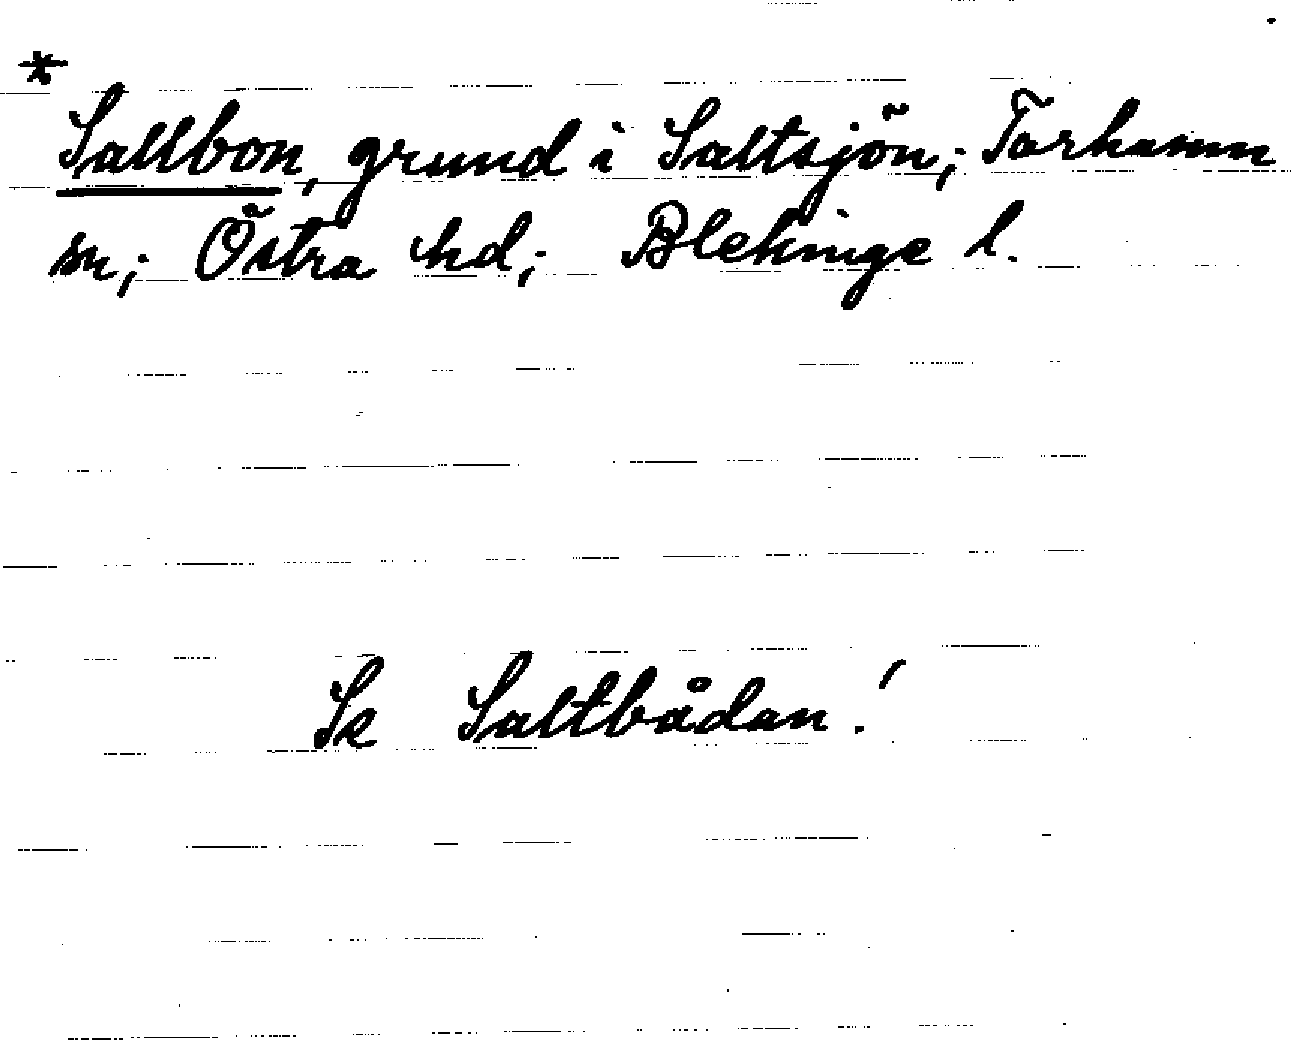 *
Sallbon, grund i Saltsjön; Torhamn
sn; Östra hd; Blekinge l.
Se Saltbådan!